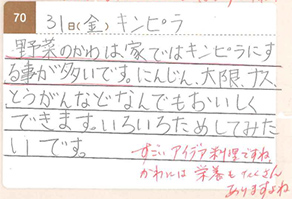 70
31日(金) キンピラ
野菜のかわは、家ではキンピラにす
る事が多いです。にんじん、大限、ナス、
とうがんなどなんでもおいしく
できます。いろいろためしてみた
いです。
すごいアイデア料理ですね
かわには栄養もたくさん
ありますよね